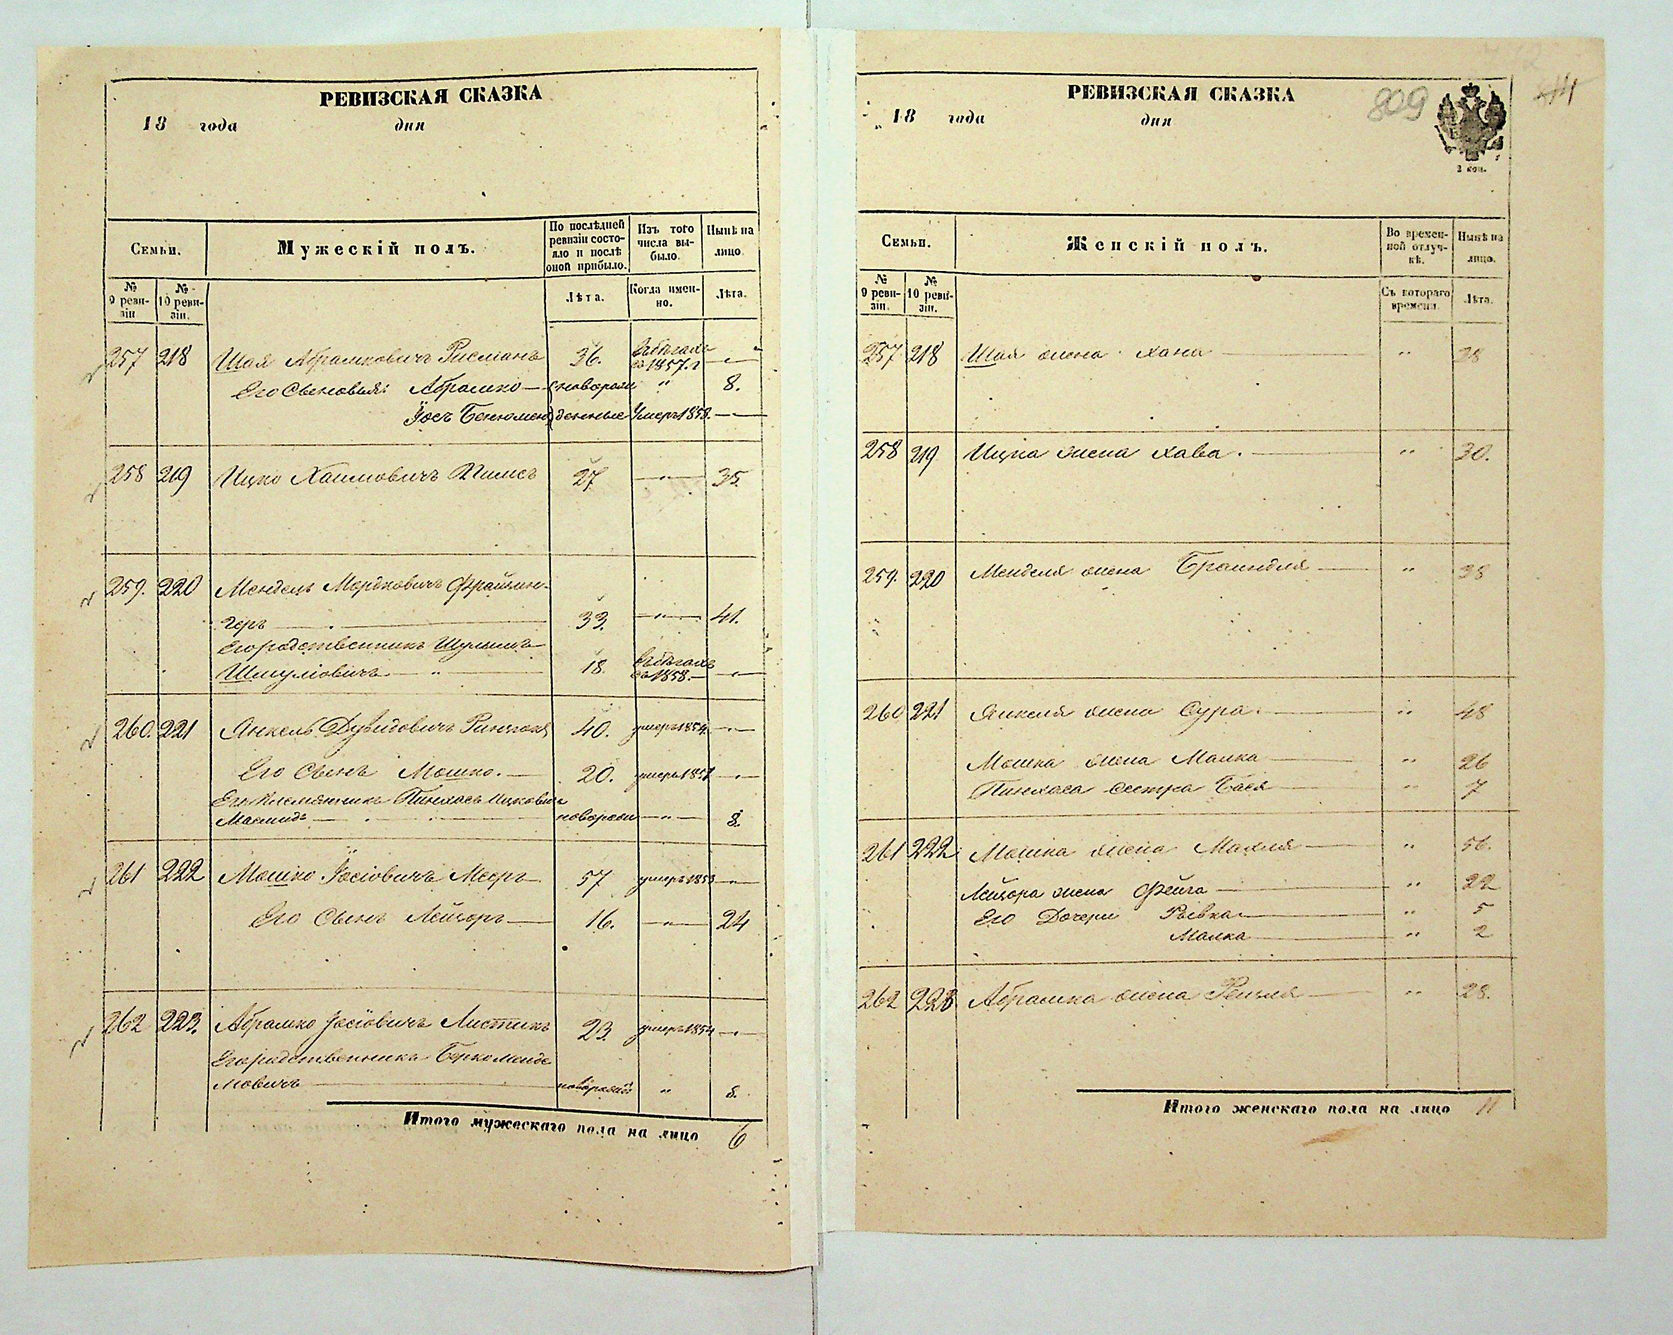 РЕВИЗСКАЯ СКАЗКА
18 года дня
Семьи.
Мужескій полъ.
По послѣдней ревизіи состояло и послѣ оной прибыло.
Изъ того числа выбыло.
Нынѣ на лицо.
№ 9 ревизіи
№ 10 ревизіи.
Лѣта.
Когда именно.
Лѣта.
257 218 Шая Абрамковичъ 36. 1857. г —"—
Его Сыновья: Абрамко — новорож " 8.
Іосъ денные Умеръ 1853. —
258 219 Ицко Хаимовичъ 27 —"— 35
259. 220 Мендель Мордковичъ
геръ 33. —"— 41.
Его родственникъ
Шмуліовичъ — " — 18. 1858. — —"—
260. 221 Янкель Дувидовичъ 40. умеръ 1854. —"—
Его Сынъ Мошко. — 20. умеръ 1857 —"—
Его племянникъ Пинхасъ Ицковичъ
новорож —"— 8.
261 222 Мошко Іосіовичъ 57 умеръ 1853 —"—
Его Сынъ Лейзоръ 16. —"— 24
262 223. Абрамко Іосіовичъ Листикъ 23. умеръ 1854 —"—
Его родственникъ Берко Менде
мовичъ " 8.
Итого мужескаго пола на лицо 6
РЕВИЗСКАЯ СКАЗКА
18 года дня
809
3 коп.
Семьи.
Женскій полъ.
Во временной отлучкѣ.
Нынѣ на лицо.
№ 9 ревизіи.
№ 10 ревизіи.
Съ котораго времени.
Лѣта.
257 218 Шая жена Хана — " 38
258 219 Ицка жена Хава. — " 30.
259. 220 Менделя жена Браиндля — " 38
260 221 Янкеля жена Сура. — " 48
Мошка жена Малка — " 26
Пинхаса сестра Бася — " 7
261 222 Мошка жена — " 56.
Лейзора жена Фейга — " 22
Его Дочери Рывка — " 5
Малка — " 2
262 223 Абрамка жена Рейзля — " 28.
Итого женскаго пола на лицо 11